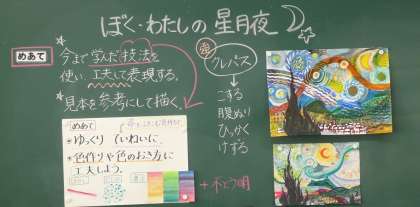 ぼく・わたしの星月夜
めあて
今まで学んだ技法を
使い、工夫して表現する。
見本を参考にして描く。
クレパス
こする
腹ぬり
ひっかく
けずる
めあて
ゆっくり ていねいに。
色作りや色のおき方に
工夫しよう。